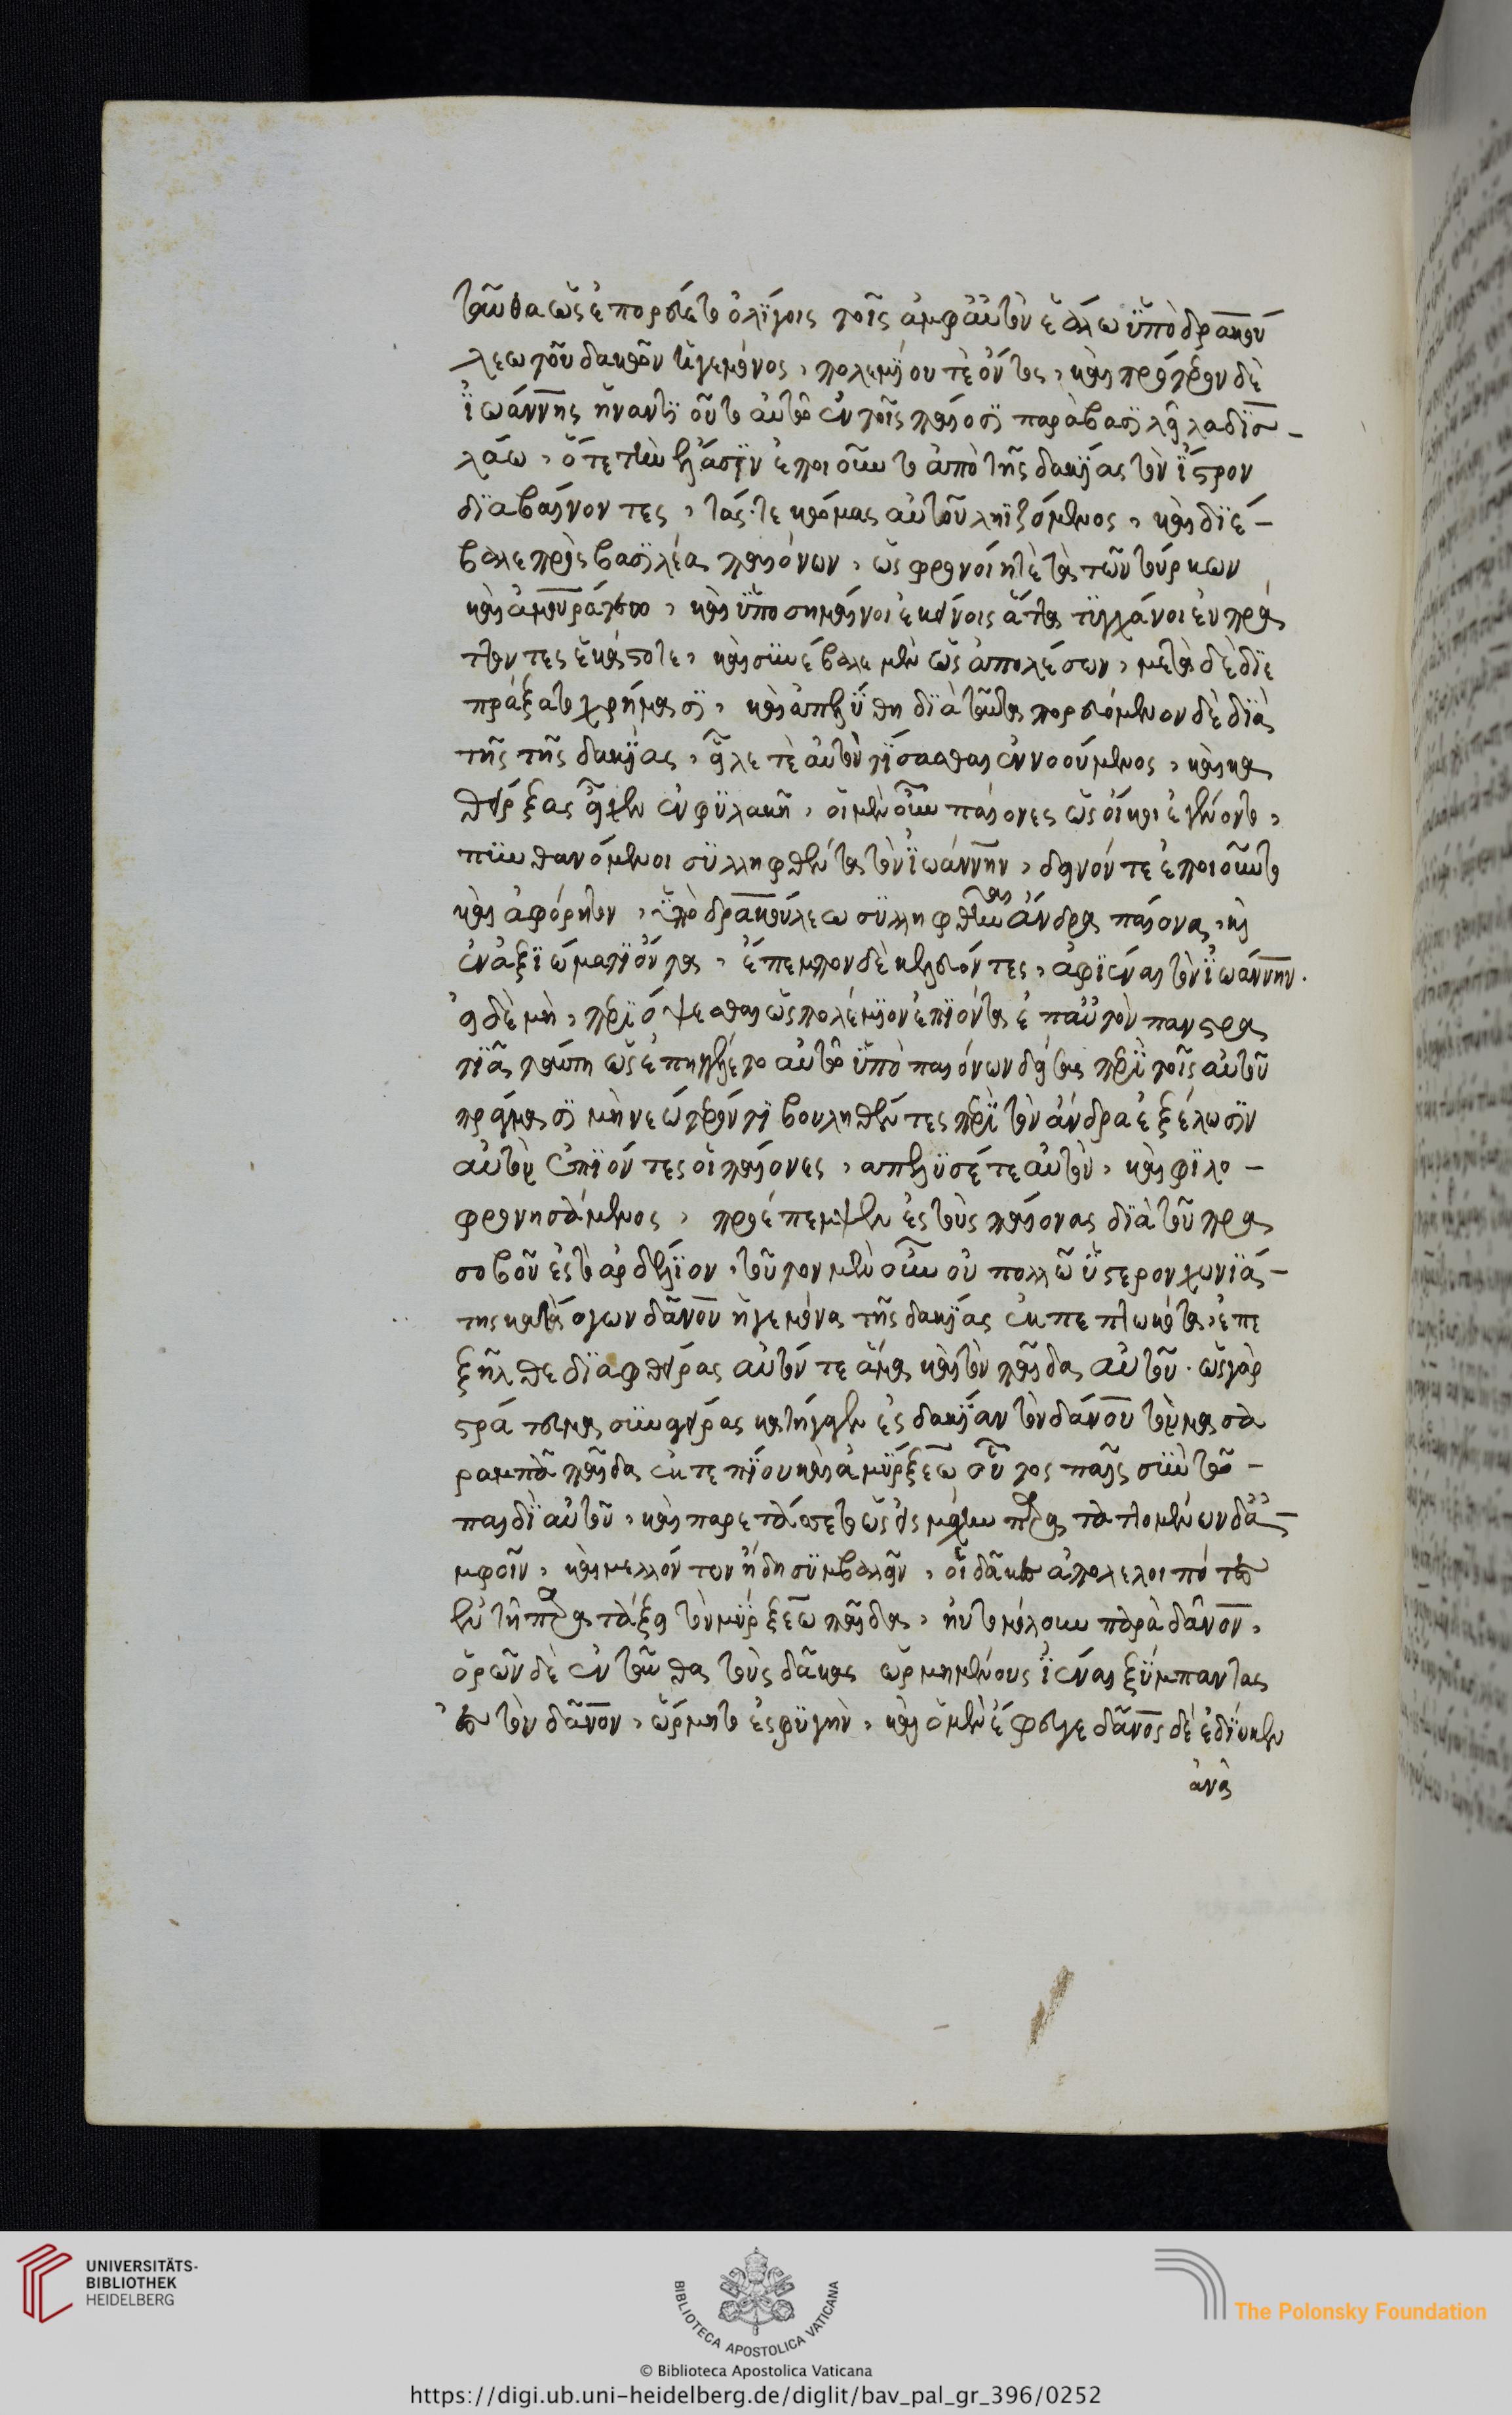 ταῦθα ὡς ἐπορεύετο ὀλίγοις τοῖς ἀμφ' αὐτὸν ἑάλω ὑπὸ δρακού
λεω τοῦ δακῶν ἡγεμόνος, πολεμίου τὲ ὄντος, καὶ πρότερον δὲ
ἰωάννης ἠναντιοῦτο αὐτῶ ἐν τοῖς παίοσι παρὰ βασιλεῖ λαδισ-
λάω, ὅτε τὴν ἔλασιν ἐποιοῦντο ἀπὸ τῆς δακίας τὸν ἴστρον
διαβαίνοντες, τάς τε κώμας αὐτοῦ ληϊζόμενος, καὶ διέ-
βαλε πρὸς βασιλέα παιόνων, ὡς φρονοίη τὲ τὰ τῶν τούρκων
καὶ ἀμουράτεω, καὶ ὑποσημαίνοι ἐκείνοις ἅττα τυγχάνοιεν πράτ
τοντες ἑκάστοτε, καὶ συνέβαλε μὲν ὡς ἀπολέσων, μετὰ δὲ διε
πράξατο χρήμασι, καὶ ἀπελύθη διὰ ταῦτα πορευόμενον δὲ διὰ
τῆς τῆς δακίας, εἷλε τὲ αὐτὸν τίσασθαι ἐννοούμενος, καὶ κα
θείρξας εἶχεν ἐν φυλακῆ, οἱ μὲν οὖν παίονες ὡς οἴκοι ἐγένοντο,
πυνθανόμενοι συλληφθέντα τὸν ἰωάννην, δεινόν τε ἐποιοῦντο
καὶ ἀφόρητον, ὑπὸ δρακούλεω συλληφθῆναι ἄνδρα παίονα, καὶ
ἐν ἀξιώματι ὄντα, ἔπεμπον δὲ κελεύοντες, ἀφιέναι τὸν ἰωάννην.
εἰ δὲ μὴ, περιόψεσθαι ὡς πολέμιον ἐπιόντα ἐπ' αὐτὸν πανστρα
τιᾶ, ταύτη ὡς ἐπηγγέλετο αὐτῶ ὑπὸ παιόνων δείσας περὶ τοῖς αὐτοῦ
πράγμασι μὴ νεώτερόν τι βουληθέντες περὶ τὸν ἄνδρα ἐξέλωσιν
αὐτὸν ἐπιόντες οἱ παίονες, απελυσέ τε αὐτὸν, καὶ φιλο-
φρονησάμενος, προέπεμψεν ἐς τοὺς παίονας διὰ τοῦ πρα
σοβοῦ ἐς τὸ ἀρδέλιον, τοῦτον μὲν οὖν οὐ πολλῶ ὕστερον χωνιά-
της κατάγων δᾶνον ἡγεμόνα τῆς δακίας ἐκπεπτωκότα, ἐπε
ξῆλθε διαφθείρας αὐτόν τε ἅμα καὶ τὸν παῖδα αὐτοῦ. ὡς γὰρ
στράτευμα συναγείρας κατήγαγεν ἐς δακίαν τὸν δάνον τὸν μασα
ραμπᾶ παῖδα ἔκ τε πίου καὶ ἀμύρξεω οὗτος παῖς σὺν τῶ-
παιδὶ αὐτοῦ, καὶ παρετάσσετο ὡς ἐς μάχην παρατατομένων δ' ἀ-
μφοῖν, καὶ μελλόντων ἤδη συμβαλεῖν, οἱ δᾶκες ἀπολελοιπότες
ἐν τῆ παρατάξει τὸν μύρξεω παῖδα, ηὐτομόλουν παρὰ δᾶνον,
ὁρῶν δὲ ἐνταῦθα τοὺς δᾶκας ὡρμημένους ἰέναι ξύμπαντας
ἐς τὸν δᾶνον, ὥρμητο ἐς φυγὴν, καὶ ὁ μὲν ἔφευγε δᾶνος δὲ ἐδίωκεν
ἀνὰ
UNIVERSITÄTS-
BIBLIOTHEK
HEIDELBERG
BIBLIOTECA APOSTOLICA VATICANA
The Polonsky Foundation
© Biblioteca Apostolica Vaticana
https://digi.ub.uni-heidelberg.de/diglit/bav_pal_gr_396/0252